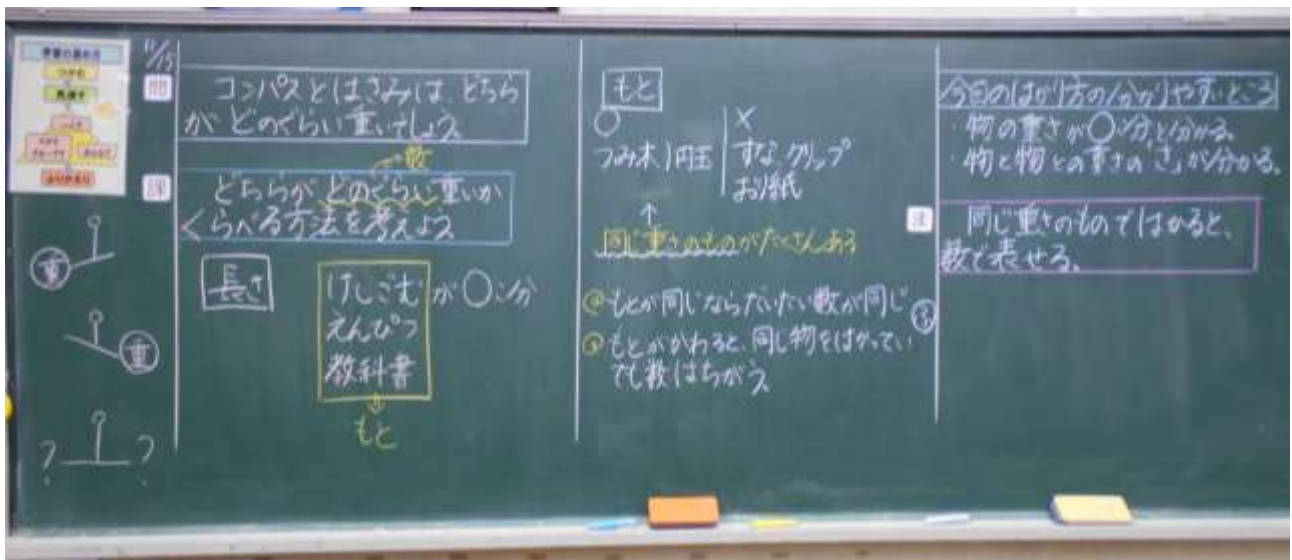 学習の進め方
つかむ
見通す
ふりかえり
11/15
問
コンパスとはさみは、どちら
がどのくらい重いでしょう。
数
課
どちらがどのくらい重いか
くらべる方法を考えよう。
長さ
けしごむが〇こ分
えんぴつ
教科書
もと
重
重
? ?
もと
〇 ×
つみ木 1円玉 すな クリップ
おり紙
↑
同じ重さのものがたくさんある
もとが同じならだいたい数が同じ
もとがかわると、同じ物をはかってい
ても数はちがう。
今回のはかり方の分かりやすいところ
・物の重さが〇こ分と分かる。
・物と物との重さの「さ」が分かる。
同じ重さのものではかると、
数で表せる。